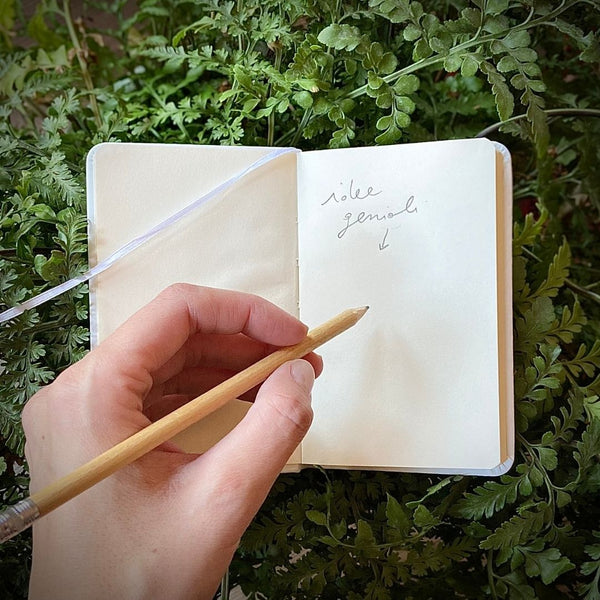 idee
geniali